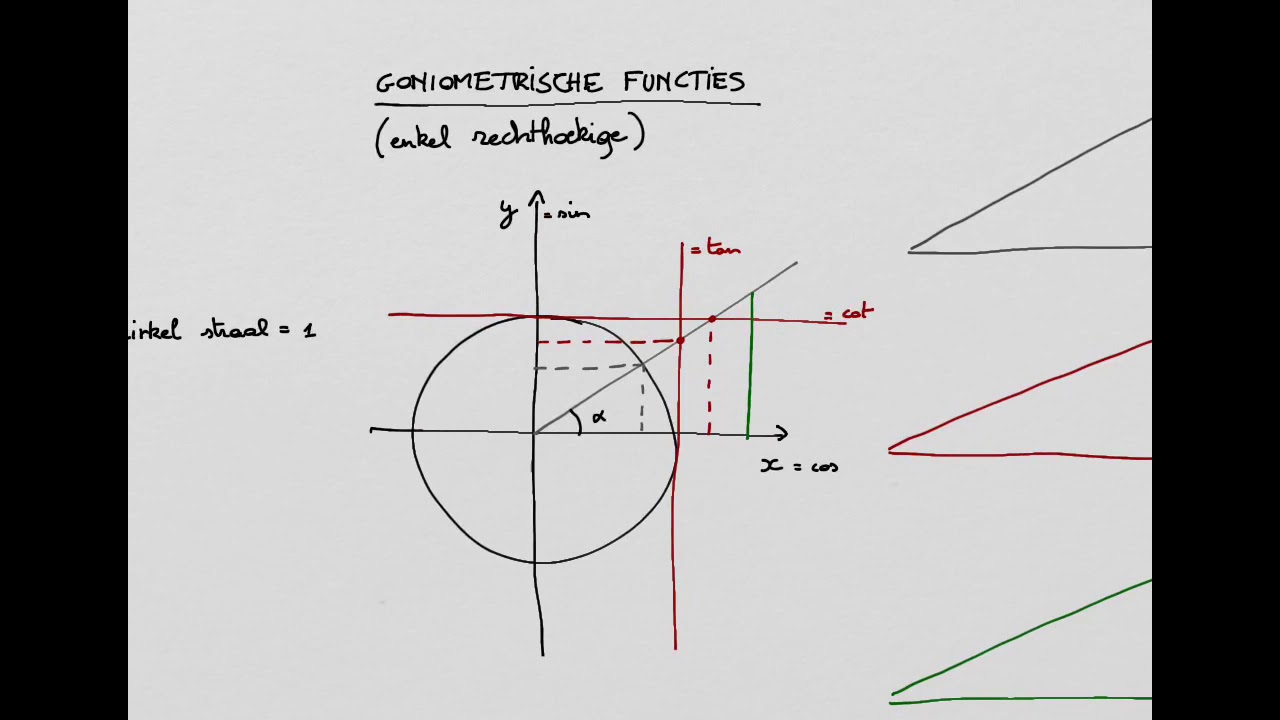 GONIOMETRISCHE FUNCTIES
(enkel rechthoekige)
y = sin
= tan
= cot
irkel straal = 1
α
x = cos